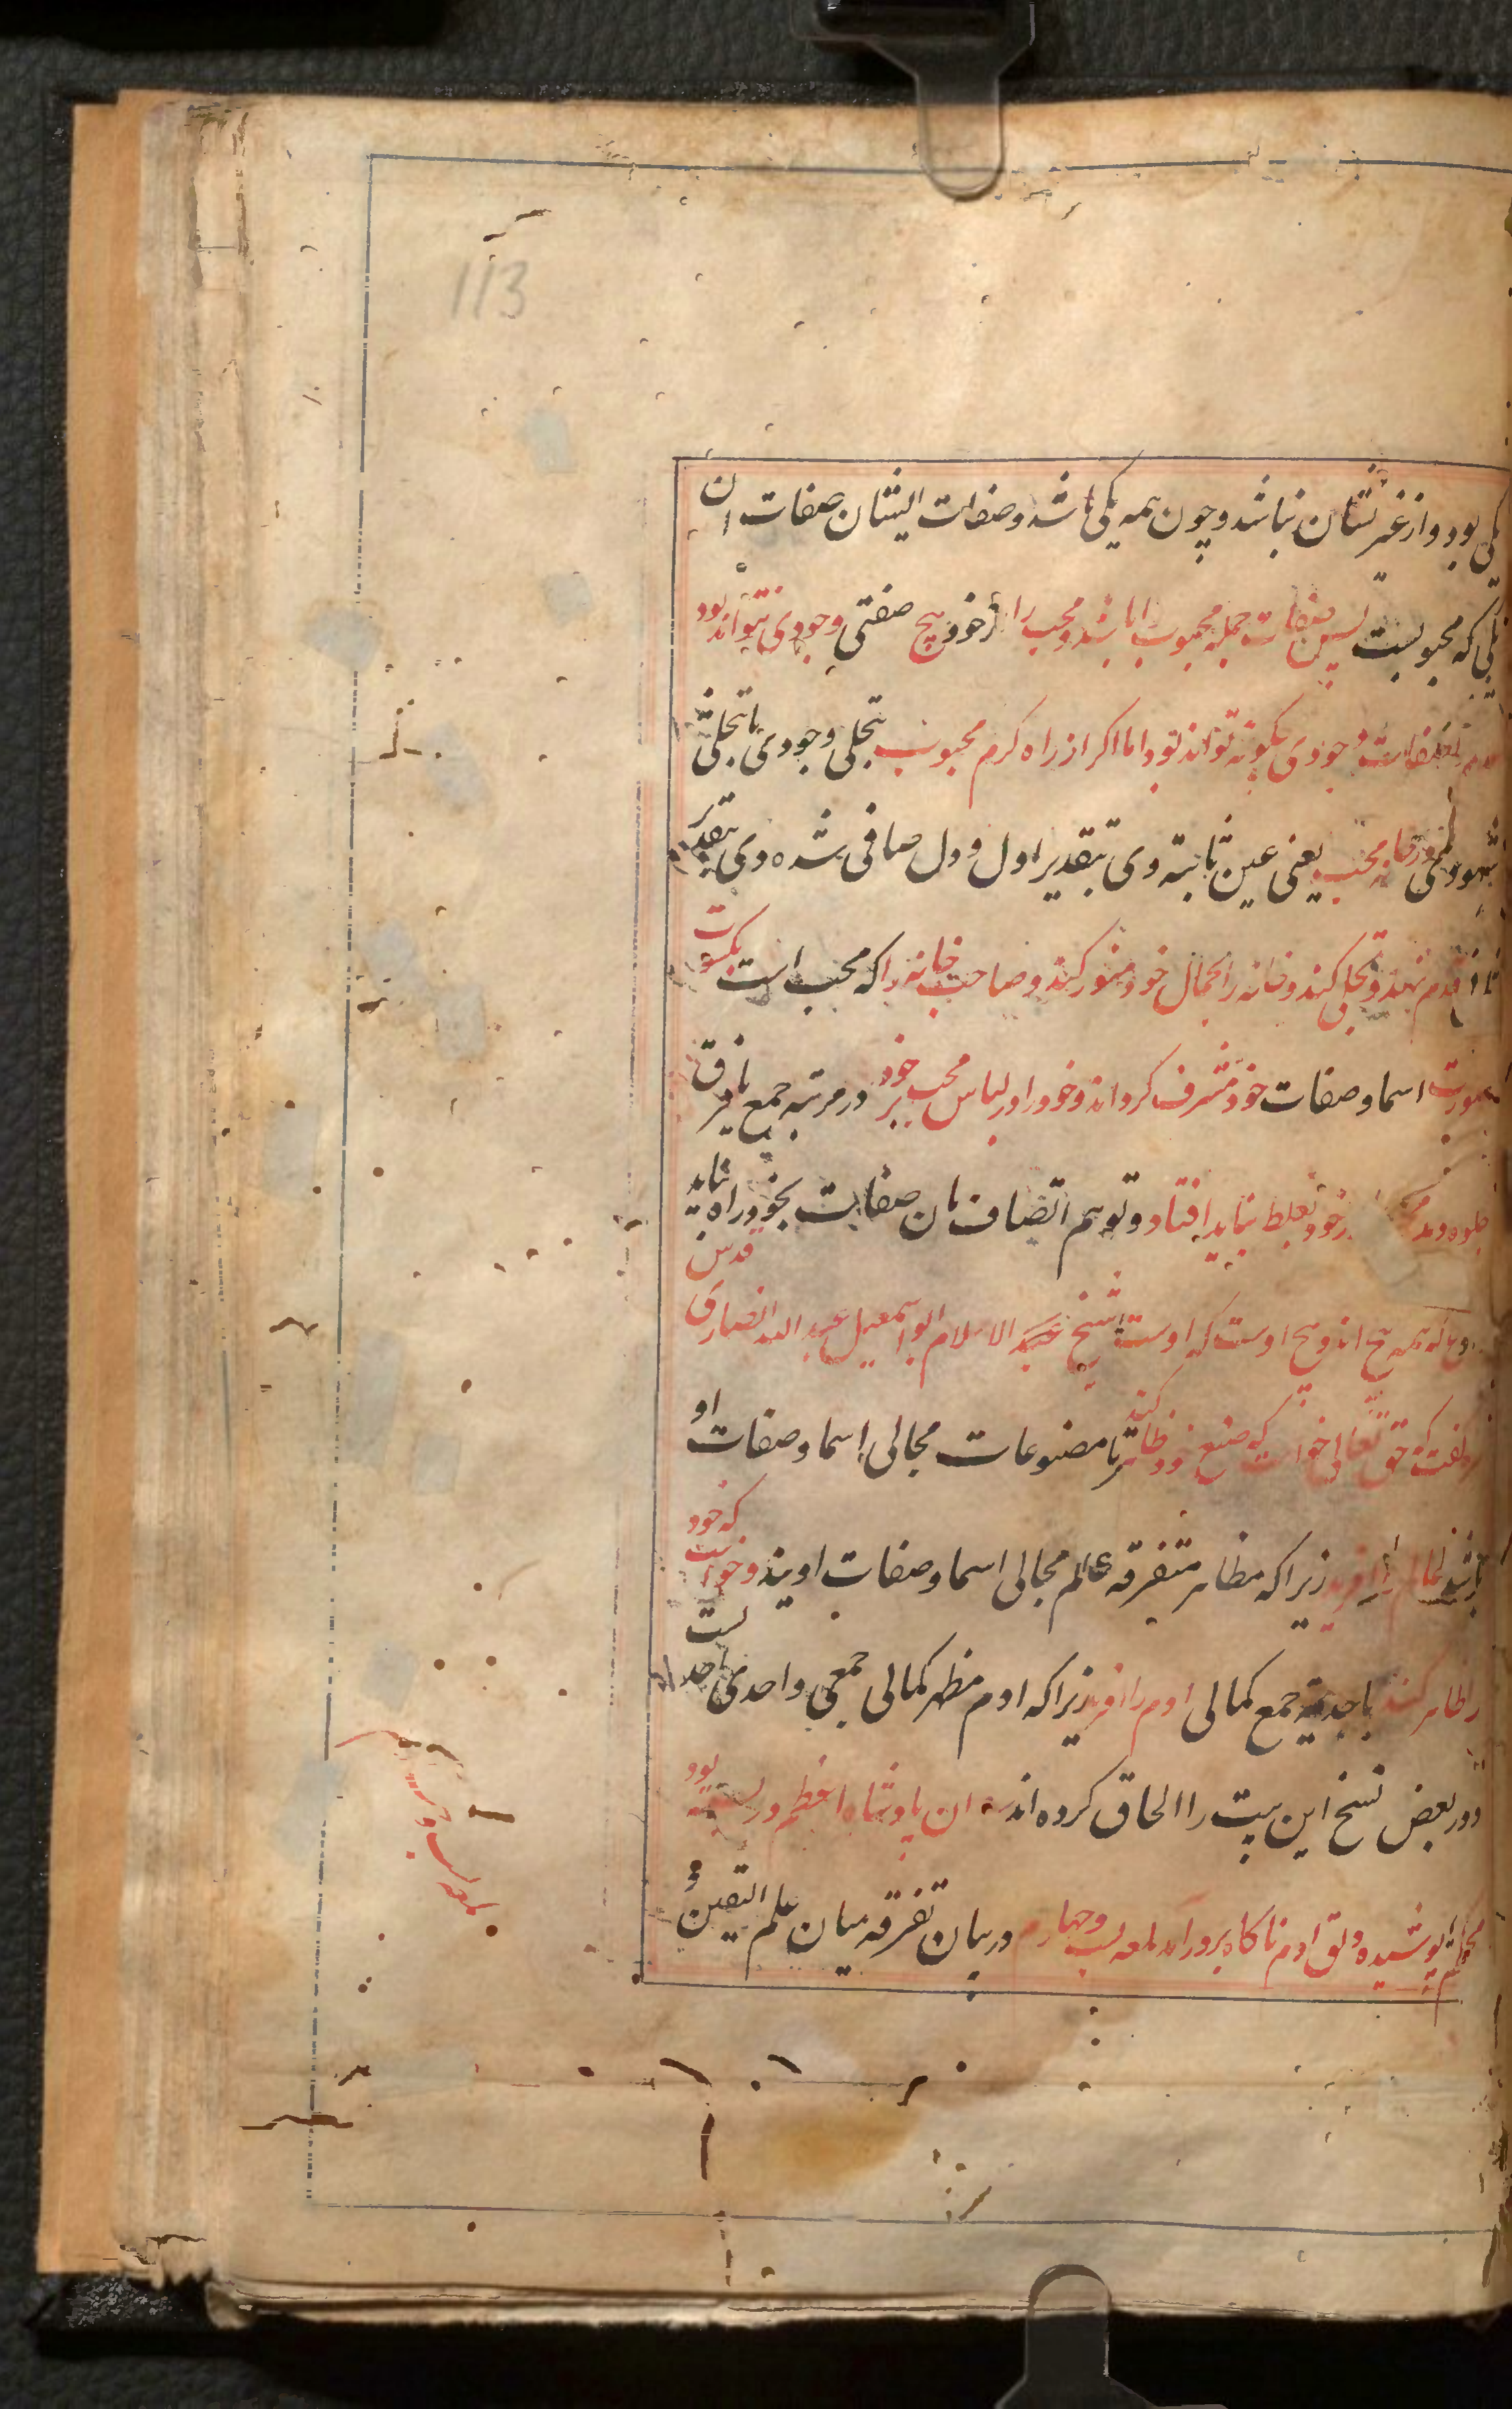 113
یکی بود و از غیر نشان نباشد و چون همه یکی باشد و صفات ایشان صفات ان
یکی که محبوبست پس صفات جمله محبوب را باشد و محب را از خود هیچ صفتی وجودی نتواند بود
عدم را صفات وجودی چگونه تواند بود اما اکر از راه کرم محبوب بتجلی وجودی یا تجلی
شهودی در خانه محب یعنی عین ثابته وی بتقدیر اول و دل صافی شده وی بتقدیر
قدم نهد و تجلی کند و خانه را بجمال خود منور کند و صاحب خانه را که محب است بکسوت
صورت اسما و صفات خود مشرف کرداند و خود را در لباس محب بر خود در مرتبه جمع یا فرق
جلوه دهد خود بغلط نباید افتاد و توهم اتصاف بان صفات بخود راه نباید
که همه هیچ اند و هیچ اوست که اوست شیخ الاسلام ابو اسمعیل عبد الله انصاری قدس
کفت که حق تعالی خواست که صنع خود ظاهر کند تا مصنوعات مجالی اسما و صفات او
باشد عالم را افرید زیرا که مظاهر متفرقه عالم مجالی اسما و صفات اویند و خواست که خود
را ظاهر کند باحدیة جمع کمالی ادم را افرید زیرا که ادم مظهر کمالی جمعی و احدی احدیست
و در بعض نسخ این بیت را الحاق کرده اند ان پادشاه اعظم در بسته بود
محکم پوشیده دلق ادم ناکاه بر در امد لمعه بیست و چهارم در بیان تفرقه میان علم الیقین و